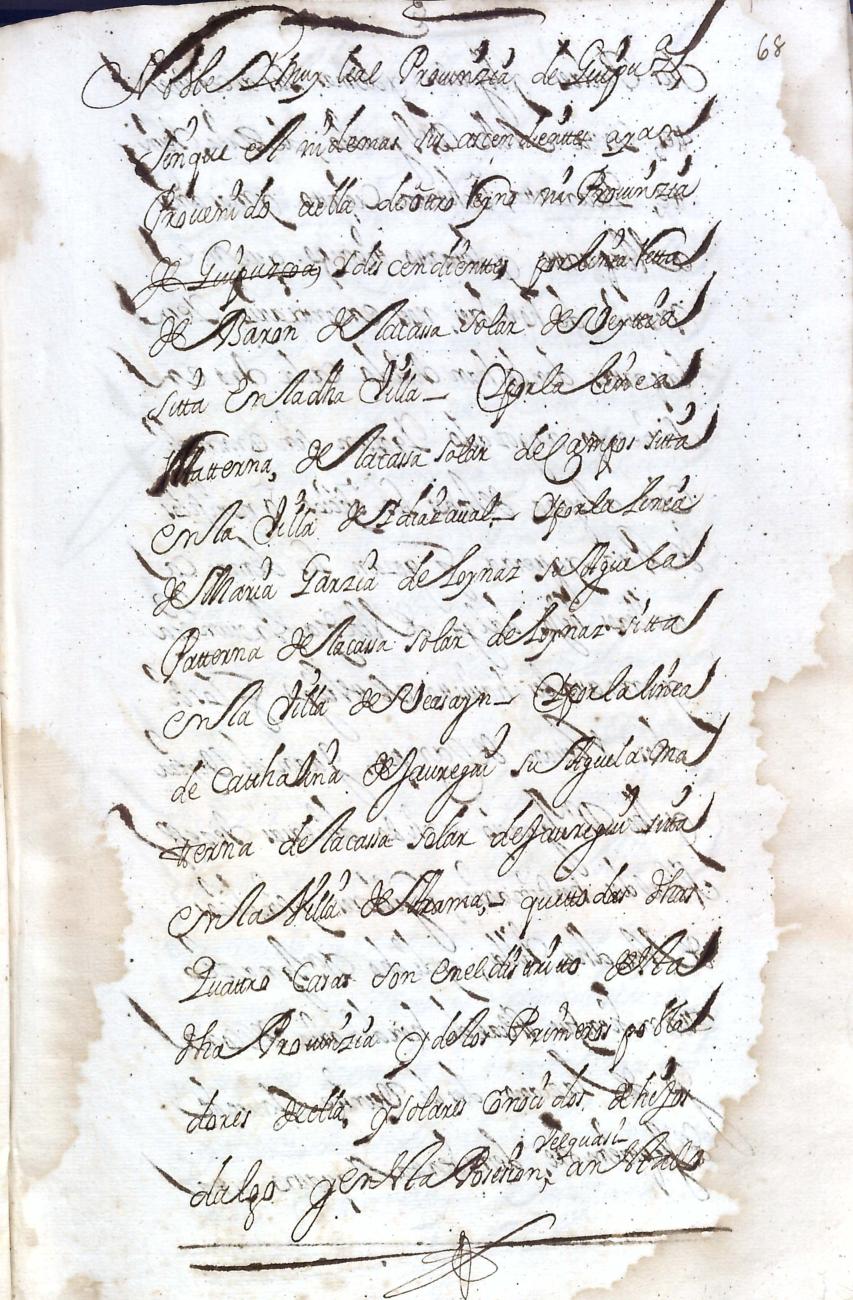 68
Noble y muy leal Provinzia de Guipuz
sin que el ni demas su aszendientes ayan
Provenido della de otro reyno ni Provinzia
de Guipuzcoa, y descendientes por linea Retta
de Baron de la cassa solar de
sitta en la dha Villa_ y por la linea
Matterna, de la cassa solar de Campos sitta
en la Villa de Ydiazaval_ y por la linea
de Maria Garzia de Loynaz su Aguela
Patterna de la cassa solar de Loynaz sitta
en la Villa de Veasayn_ y por la linea
de Catthalina de Jauregui su Aguela ma
tterna de la cassa solar de Jauregui sitta
en la Villa de_ que ttodas dhas
Quattro Casas son en el disttritto desta
dha Provinzia y de los Primeros pobla
dores della, y solares conocidos de hijos
dalgo y en esta Posesion, an estado